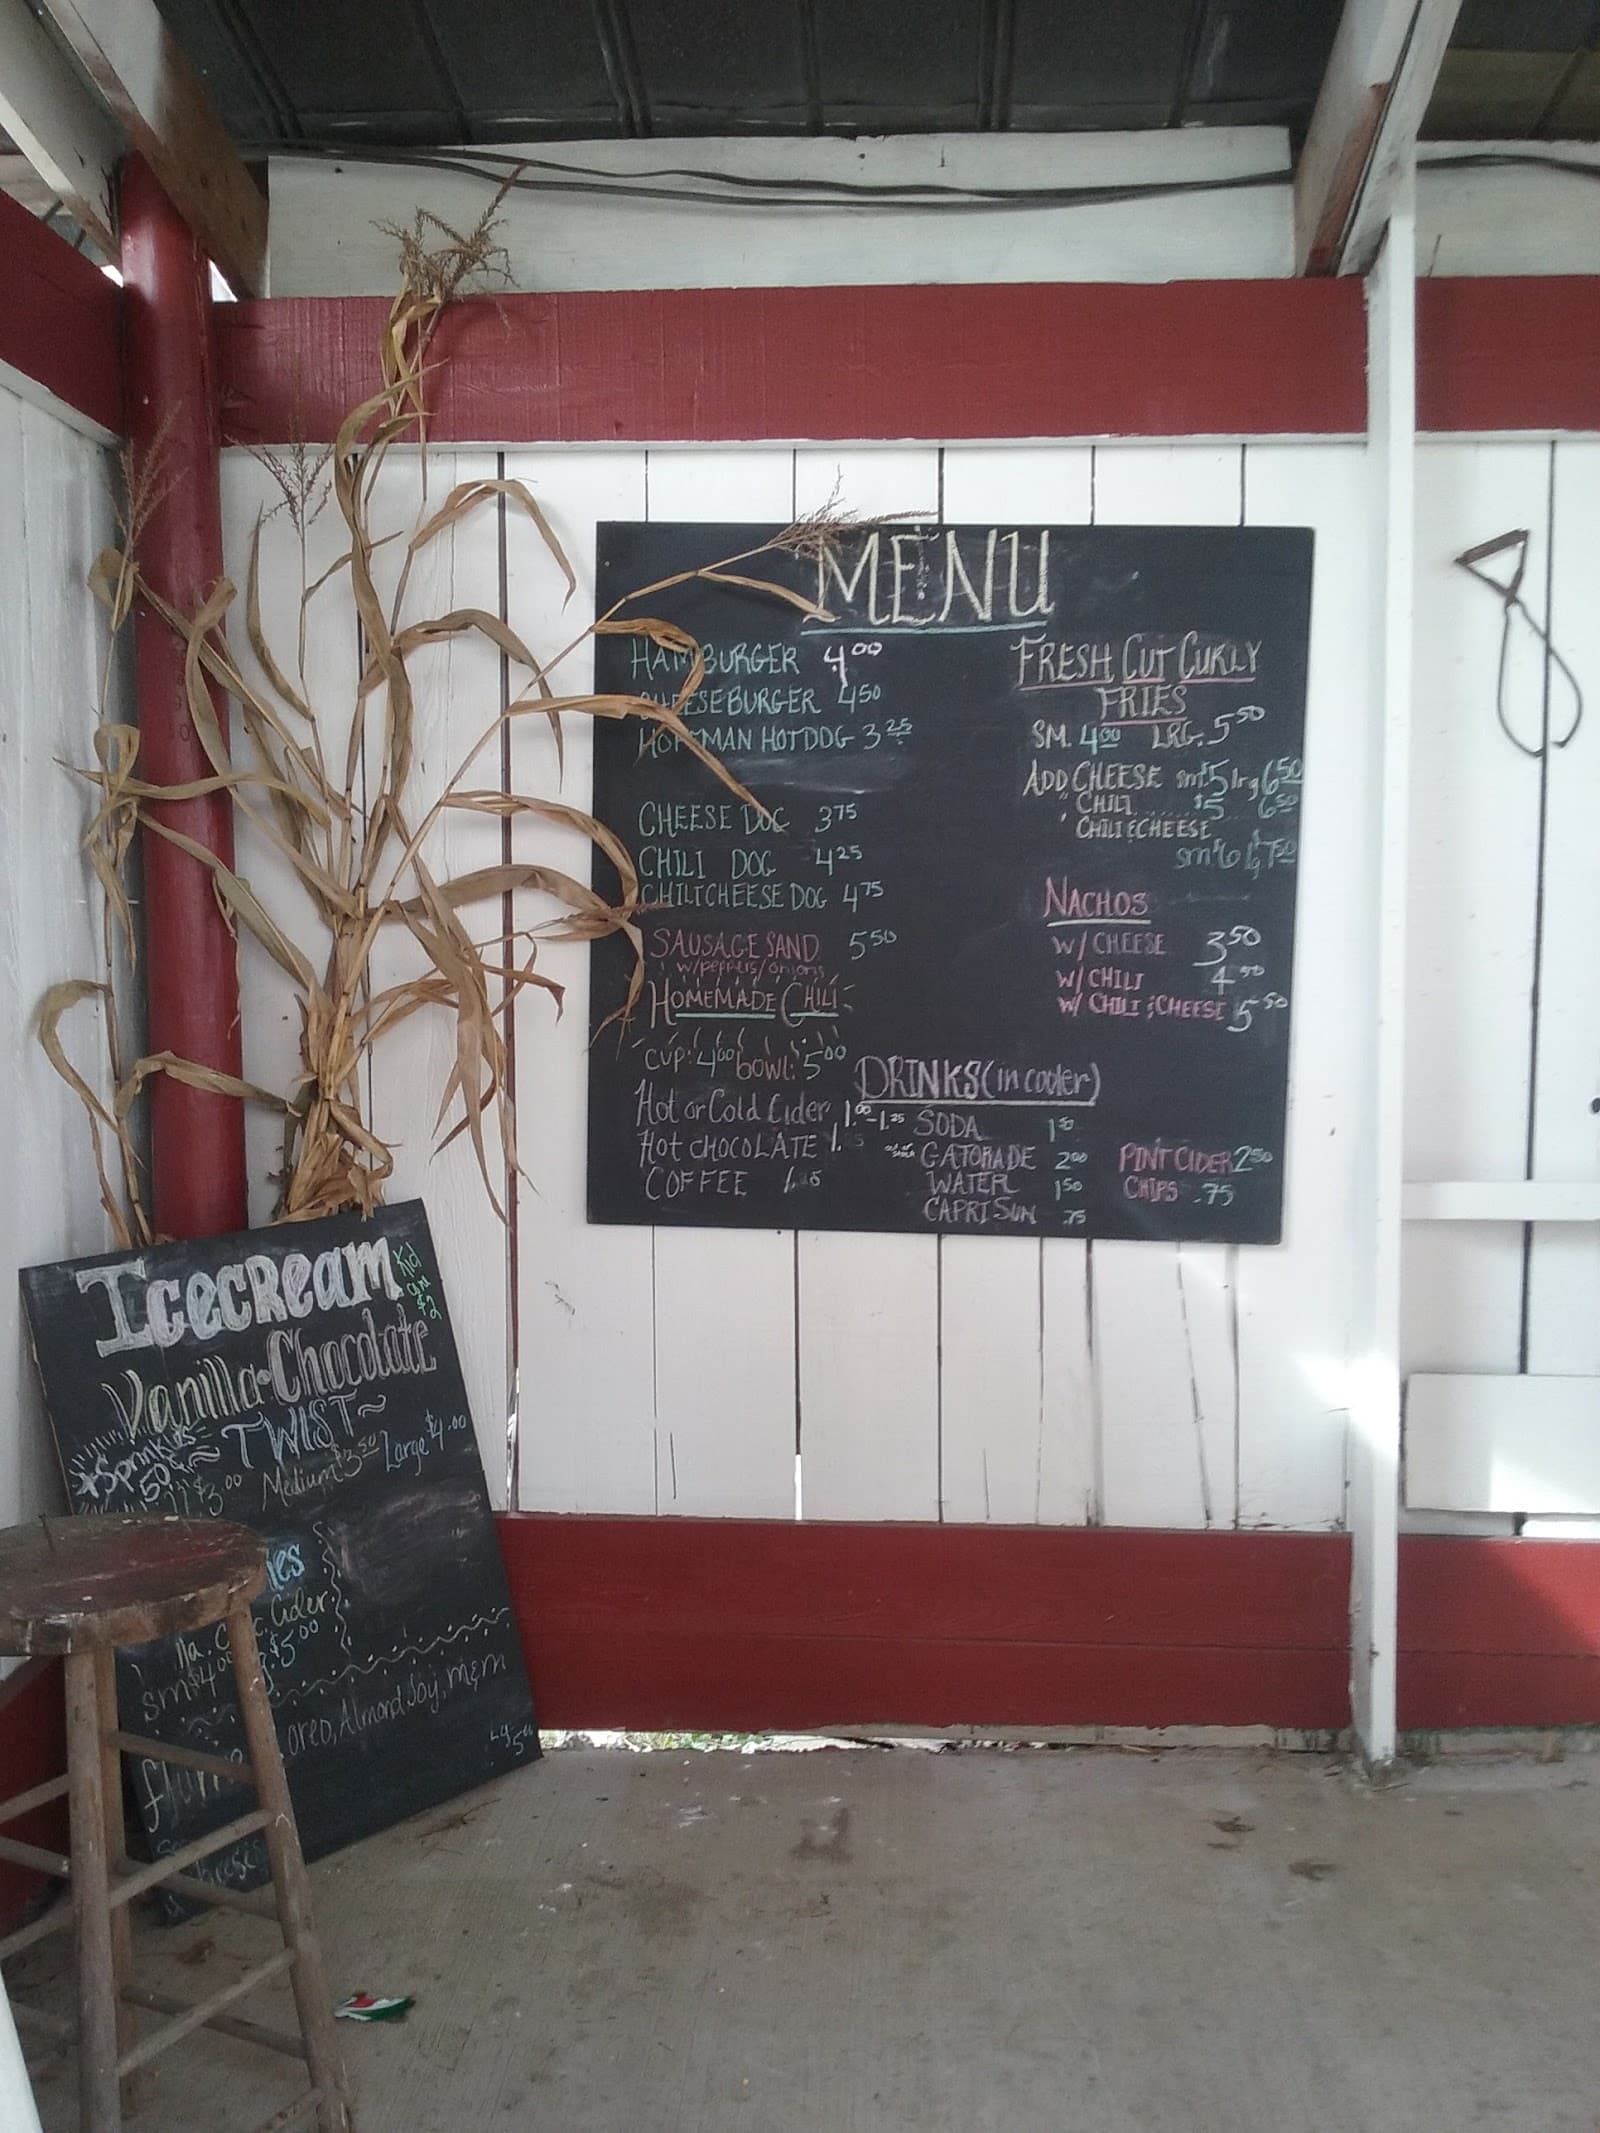 MENU
HAMBURGER 4.00
CHEESEBURGER 4.50
HOFFMAN HOTDOG 3.25
CHEESE DOG 3.75
CHILI DOG 4.25
CHILI CHEESE DOG 4.75
SAUSAGE SAND 5.50
w/peppers/onions
HOMEMADE CHILI
cup: 4.00 bowl: 5.00
Hot or Cold Cider 1.00-1.25
Hot CHOCOLATE 1.
COFFEE 1.25
FRESH CUT CURLY
FRIES
SM. 4.00 LRG. 5.50
ADD CHEESE sm $5 lrg 6.50
" CHILI ...... $5 6.50
" CHILI & CHEESE
sm $6 lg 7.50
NACHOS
W/ CHEESE 3.50
W/ CHILI 4.50
W/ CHILI & CHEESE 5.50
DRINKS (in cooler)
SODA 1.50
out of stock GATORADE 2.00
WATER 1.50
CAPRISUN .75
PINT CIDER 2.50
CHIPS .75
Icecream
Kid
$2
Vanilla Chocolate
~TWIST~
Sprinkles
50¢
$3.00 Medium $3.50 Large $4.00
Cider
sm $4.00 $5.00
oreo, Almond Joy, m&m
Lg 5.00